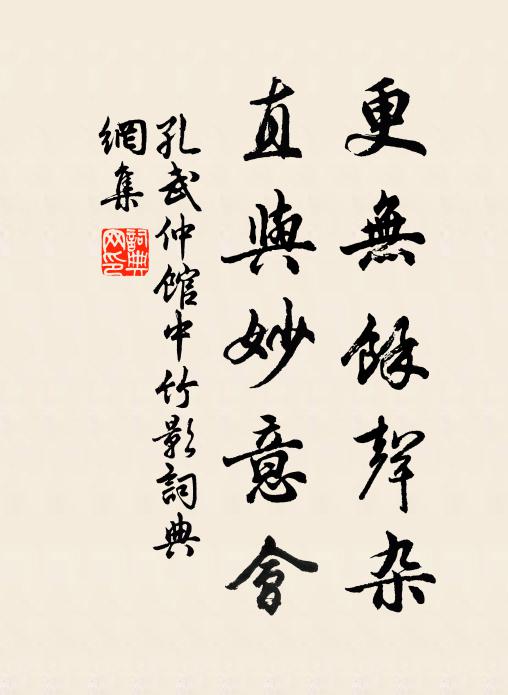 更無餘聲杂
直與妙意會
孔武仲館中竹影詞典
網集
詞典网印